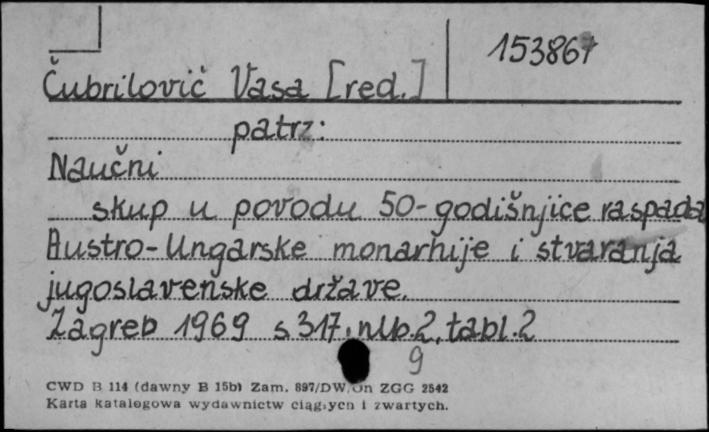 153867
Čubrilović Vasa [red.]
patrz:
Naučni
skup u povodu 50-godišnjice raspada
Austro-Ungarske monarhije i stvaranja
jugoslavenske države.
Zagreb 1969 s 317, nlb. 2, tabl. 2
9
CWD B 114 (dawny B 15b) Zam. 897/DW/On ZGG 2542
Karta katalogowa wydawnictw ciągłych i zwartych.